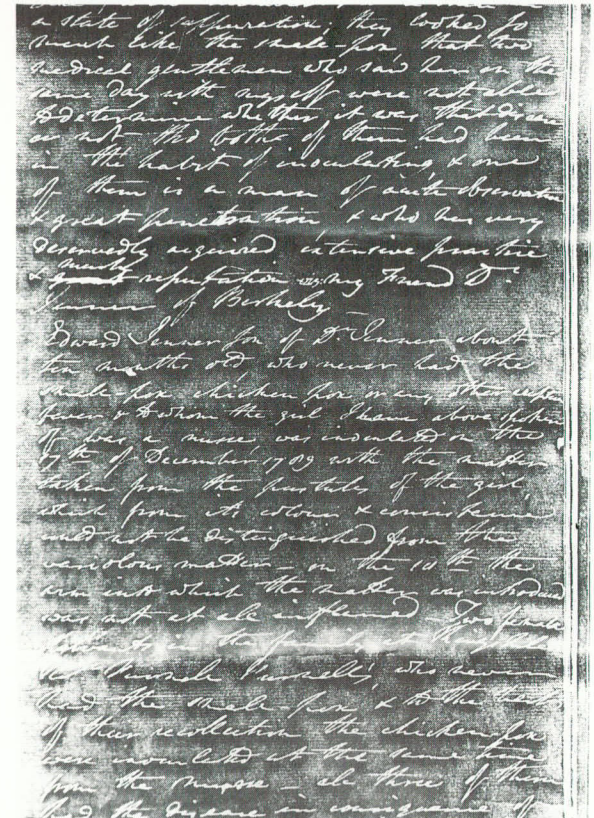 a state of suppuration; they looked so
much like the smale-pox, that two
medical gentlemen who saw her on the
same day with myself were not able
to determine whether it was that disease
or not tho' both of them had been
in the habit of inoculating & one
of them is a man of acute observation
& great penetration & who has very
deservedly acquired extensive practice
& reputation viz: my Friend Dr.
Jenner of Berkeley
Edward Jenner son of Dr. Jenner about
ten months old who never had the
smale pox chicken pox or any other
fever & to whom the girl I have above spoken
of was a nurse was inoculated on the
17th of December 1789 with the matter
taken from the pustules of the girl
which from its colour & consistence
could not be distinguished from the
variolous matter - on the the
arm into which the matter was introduced
was not at all inflamed - Two
in the
who never
had the smale pox & to the best
of their recollection the chicken pox
were inoculated at the same time
from the nurse - all three of them
had the disease in consequence of